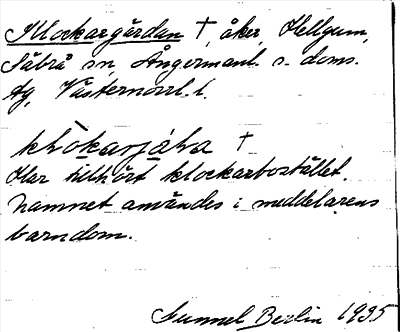 Klockargårdan †, åker, Hellgum,
Säbrå sn, Ångermanl. s. doms.
tg, Västernorrl. l.
klòkarjáḷa †
Har tillhört klockarbostället.
Namnet användes i meddelarens
barndom.
Gunnel Berlin 1935